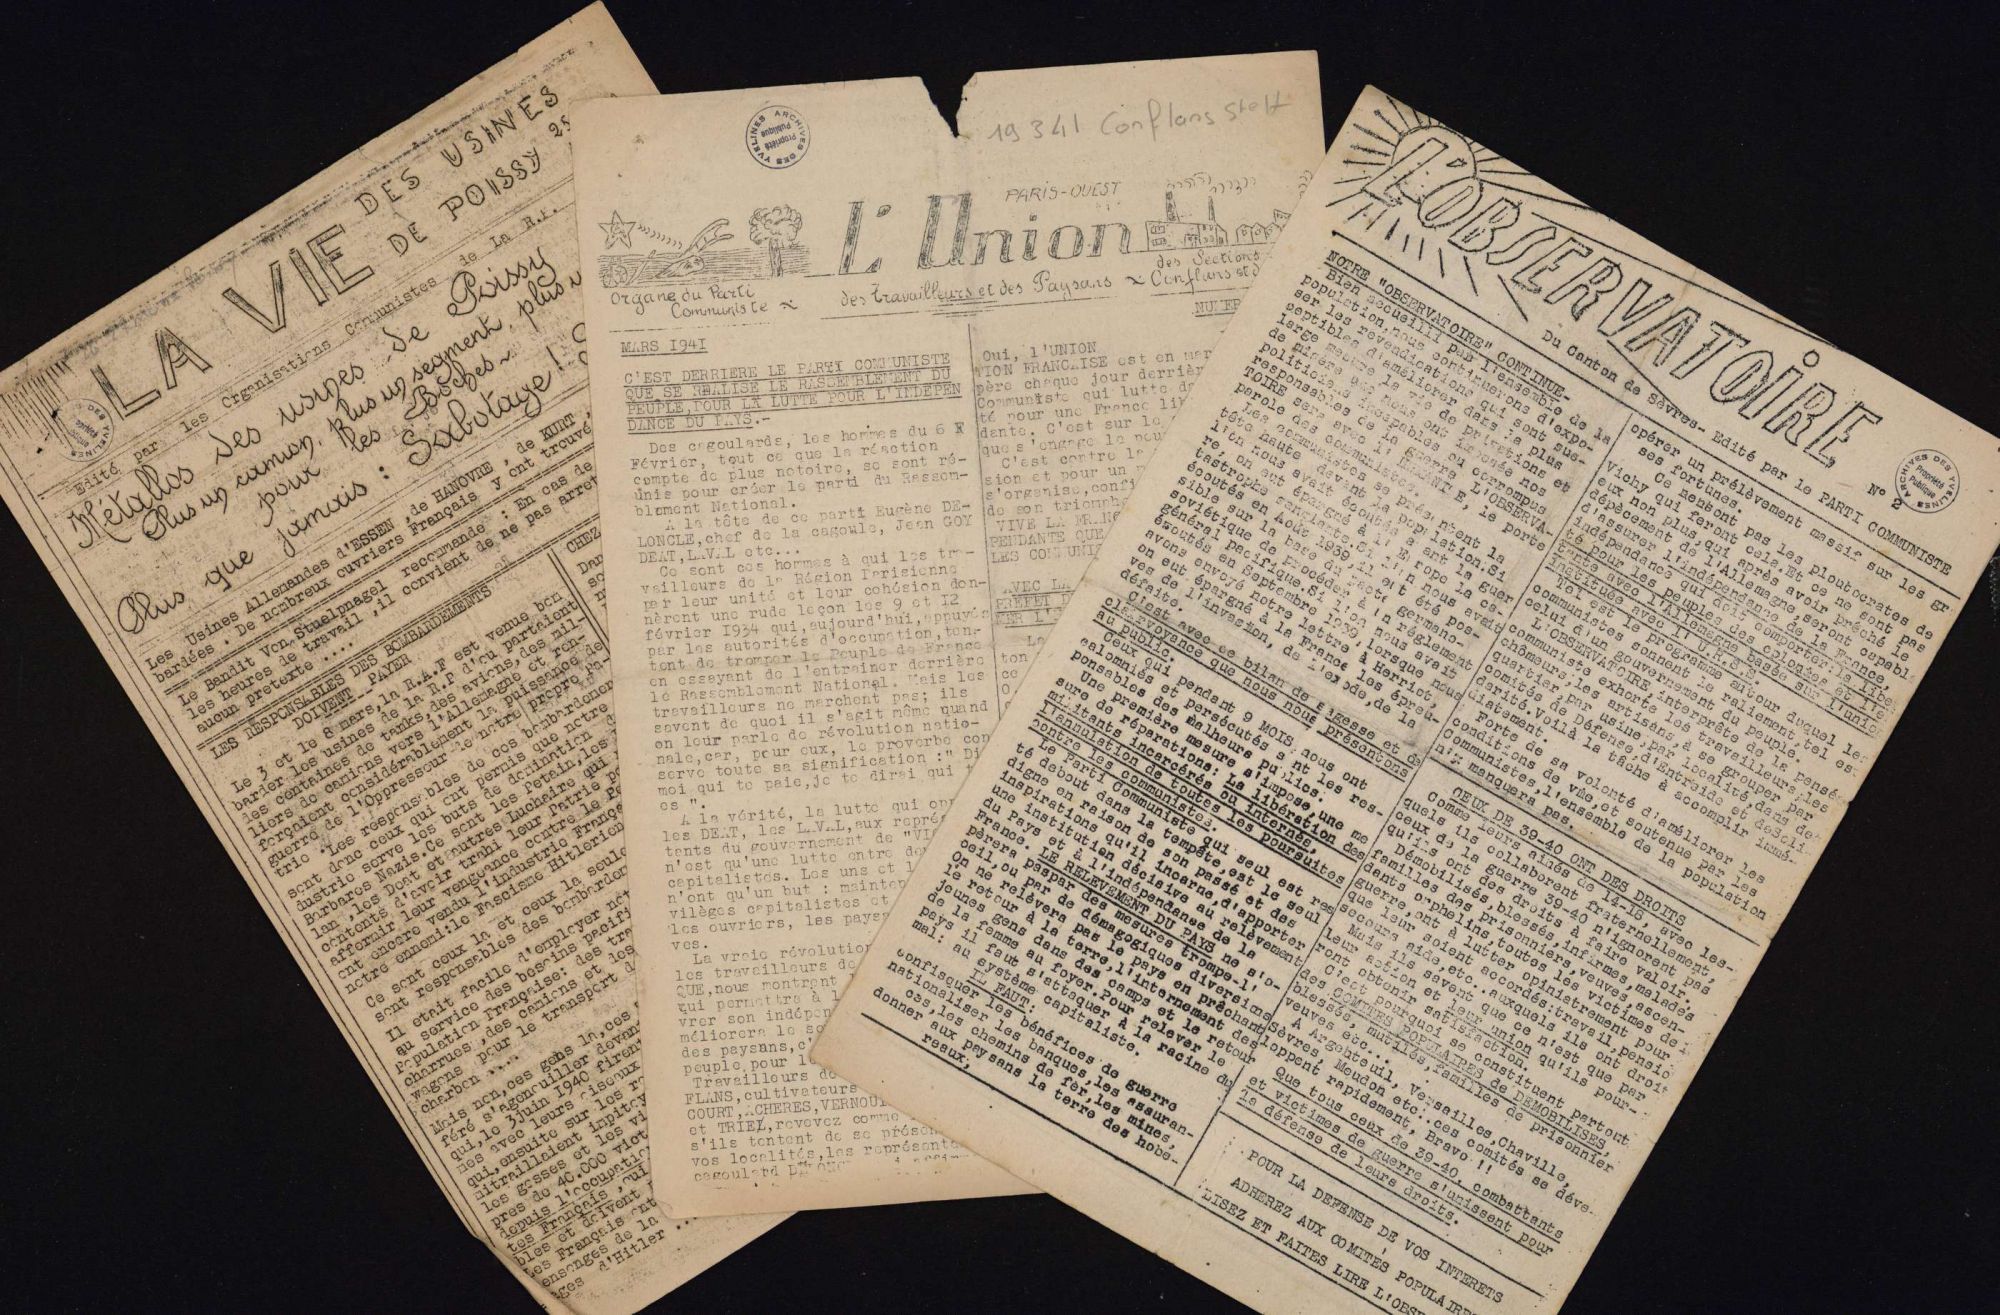 LA VIE DES USINES
DE POISSY
Edité par les Organisations Communistes de La R.P.
Métallos des usines de Poissy
Plus un camion, Plus un segment, plus
pour les Boches
Plus que jamais : Sabotage !
Les Usines Allemandes d'ESSEN, de HANOVRE, de KURT
bardées. De nombreux ouvriers Français y ont trouvé
Le Bandit Von Stuelpnagel recommande : En cas de
les heures de travail, il convient de ne pas arret
aucun pretexte ....
LES RESPONSABLES DES BOMBARDEMENTS
DOIVENT PAYER
CHEZ
Le 3 et le 8 mars, la R.A.F est venue bom
barder les usines de la R.P d'ou partaient
des centaines de tanks des avions, des mil-
liers de camions vers l'Allemagne et ren-
forçaient considérablement la puissance de
guerre de l'Oppresseur de notre propre Pa-
trie
Les responsables de ces bombardements
sont donc ceux qui ont permis que notre
dustrie serve les buts de domination
Barbares Nazis. Ce sont les Petain, les
lan, les Deat et autres Luchaire qui
contents d'avoir trahi leur Patrie
affermir leur vengeance contre le Pe
ont encore vendu l'industrie França
notre ennemi: le Fascisme Hitlerien
Ce sont ceux la et ceux la seule
sont responsables des bombardem
Il etait facile d'employer not
au service des besoins pacifi
Population Française: des tra
charrues, des camions et des
wagons pour le transport d
charbon ....
Mais non, ces gens la, ces
féré s'agenouiller devan
qui, le 3 juin 1940 firent
mes avec leurs oiseaux
qui, ensuite sur les ro
mitraillaient impitoy
les gosses et les vi
pres de 40.000 vict
depuis l'occupatio
tes Français, qui
bles et doivent
Les Français
ensonges de la
ges d'Hitler ...
ARCHIVES DES YVELINES
Propriété Publique
19 341 Conflans Ste H
PARIS-OUEST
L'Union
Organe du Parti Communiste
des Travailleurs et des Paysans
des Sections
Conflans et d
MARS 1941
C'EST DERRIERE LE PARTI COMMUNISTE
QUE SE REALISE LE RASSEMBLEMENT DU
PEUPLE, POUR LA LUTTE POUR L'INDEPEN
DANCE DU PAYS.-
Des cagoulards, les hommes du 6
Février, tout ce que la réaction
compte de plus notoire, se sont ré-
unis pour créer le parti du Rassem-
blement National.
A la tête de ce parti Eugène DE-
LONCLE, chef de la cagoule, Jean GOY
DEAT, L.V.L etc...
Ce sont ces hommes à qui les tra-
vailleurs de la Région Parisienne
par leur unité et leur cohésion don-
nèrent une rude leçon les 9 et 12
février 1934 qui, aujourd'hui, appuyés
par les autorités d'occupation, ten-
tent de tromper le Peuple de France
en essayant de l'entrainer derrière
le Rassemblement National. Mais les
travailleurs ne marchent pas; ils
savent de quoi il s'agit même quand
on leur parle de révolution natio-
nale, car, pour eux, le proverbe con
serve toute sa signification :" Di
moi qui te paie, je te dirai qui t
es ".
A la vérité, la lutte qui opp
les DEAT, les L.V.L, aux repré
tents du gouvernement de "VIC
n'est qu'une lutte entre deu
capitalistes. Les uns et l
n'ont qu'un but : mainten
vilèges capitalistes et
les ouvriers, les pays
ves.
La vraie révolution
les travailleurs de
QUE, nous montrent
qui permettra à l
vrer son indépen
méliorera le so
des paysans, c'
peuple, pour l
Travailleurs de
FLANS, cultivateurs
COURT, ACHERES, VERNOUI
et TRIEL, revevez comme
s'ils tentent de se présen
vos localités, les représent
cagoulard
Oui, l'UNION
TION FRANCAISE est en mar
père chaque jour derrièr
Communiste qui lutte de
té pour une France lib
dante. C'est sur le
que s'engage le peu
C'est contre la
sion et pour un
s'organise, confi
de son triomph
VIVE LA FRANC
PENDANTE QUE
LES COMMUNI
AVEC LA
PREFET D
La
ton
L'OBSERVATOIRE
Du Canton de Sèvres- Edité par le PARTI COMMUNISTE
N° 2
ARCHIVES DES YVELINES
Propriété Publique
NOTRE "OBSERVATOIRE" CONTINUE-
Bien accueilli par l'ensemble de la
population, nous continuerons d'expo-
ser les revendications qui sont sus-
septibles d'améliorer dans la plus
large mesure la vie de privations et
de misère que nous ont imposée nos
politiciens incapables ou corrompus
responsables de la guerre. L'OBSERVA-
TOIRE sera avec l'EMANCIPE, le porte
parole des communistes.
Les communistes se présentent la
tête haute devant la population. Si
l'on nous avait écoutés, à la guer
re, on eut épargné à l'Europe la ca-
tastrophe sanglante. Si l'on nous avait
écoutés en Août 1939, il eut été pos-
sible sur la base du pacte germano-
soviétique de procéder à un règlement
général pacifique. Si l'on nous avait
écoutés en Septembre 1939, lorsque nous
avons envoyé notre lettre à Herriot,
on eut épargné à la France les épreu-
ves de l'invasion, de l'exode, de la
défaite.
C'est avec ce bilan de sagesse et de
clairvoyance que nous nous présentons
au public.
Ceux qui pendant 9 MOIS nous ont
calomniés et persécutés sont les res-
ponsables des malheurs publics.
Une première mesure s'impose, une me
sure de réparations: La libération des
militants incarcérés ou internés,
l'annulation de toutes les poursuites
contre les communistes.
Le Parti Communiste qui seul est res
té debout dans la tempête, est le seul
digne en raison de son passé et des
inspirations qu'il incarne, d'apporter
une institution décisive au relèvement
du Pays et à l'indépendance de la
France. LE RELEVEMENT DU PAYS ne s'o-
pèrera pas par des mesures trompe-l'
oeil, ou par de démagogiques diversions
On ne relèvera pas le pays en prêchant
le retour à la terre, l'internement des
jeunes gens dans des camps et le retour
de la femme au foyer. Pour relever le
pays il faut s'attaquer à la racine du
mal: au système capitaliste.
IL FAUT:
confisquer les bénéfices de guerre
nationaliser les banques, les assuran-
ces, les chemins de fer, les mines,
donner aux paysans la terre des hobe-
reaux,
opérer un prélèvement massif sur les gr
ses fortunes.
Ce ne sont pas les ploutocrates de
Vichy qui feront cela. Et ce ne sont pas
eux non plus, qui, après avoir prêché le
dépècement de l'Allemagne, seront capabl
d'assurer l'indépendance de la France,
indépendance qui doit comporter: la libe
té pour les peuples des colonies et l'e
tente avec l'Allemagne basée sur l'union
instituée avec l'U.R.S.S.
Tel est le programme autour duquel les
communistes sonnent le raliement, tel es
celui d'un gouvernement du peuple.
L'OBSERVATOIRE, interprète de la pensée
communiste, exhorte les travailleurs, les
chômeurs, les artisans, à se grouper par
quartier, par usine, par localité, dans des
comités de Défense, d'Entraide et de Soli
darité. Voilà la tâche à accomplir immé-
diatement.
Forte de sa volonté d'améliorer les
conditions de vie, et soutenue par les
Communistes, l'ensemble de la population
n'y manquera pas.
CEUX DE 39-40 ONT DES DROITS
Comme leurs aînés de 14-18, avec les-
quels ils collaborent fraternellement,
ceux de la guerre 39-40 n'ignorent pas
qu'ils ont des droits à faire valoir.
Démobilisés, blessés, infirmes, malades
familles des prisonniers, veuves, ascen-
dants orphelins, toutes les victimes de
guerre, ont à lutter opiniâtrement pour
que leur soient accordés: travail, pensio
secours aide, etc.. auxquels ils ont droit
Mais ils savent que ce n'est que par
leur action et leur union qu'ils pour-
ront obtenir satisfaction.
C'est pourquoi se constituent partout
des COMITES POPULAIRES de DEMOBILISES,
blessés, mutilés, familles de prisonnier
veuves etc...
A Argenteuil, Versailles, Chaville,
Sèvres, Meudon etc... ces comités se déve-
loppent rapidement, Bravo !!
Que tous ceux de 39-40, combattants
et victimes de guerre s'unissent pour
la défense de leurs droits.
POUR LA DEFENSE DE VOS INTERETS
ADHEREZ AUX COMITES POPULAIRES
LISEZ ET FAITES LIRE L'OBSE